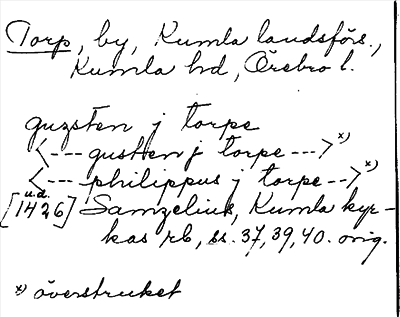 Torp, by, Kumla landsförs.,
Kumla hd, Örebro l.
guzsten j torpe
<--- gusten j torpe --->x)
<--- philippus j torpe -->x)
u.d.
[1426] Samzelius, Kumla kyr-
kas rb, ss. 37, 39, 40. orig.
x) överstruket